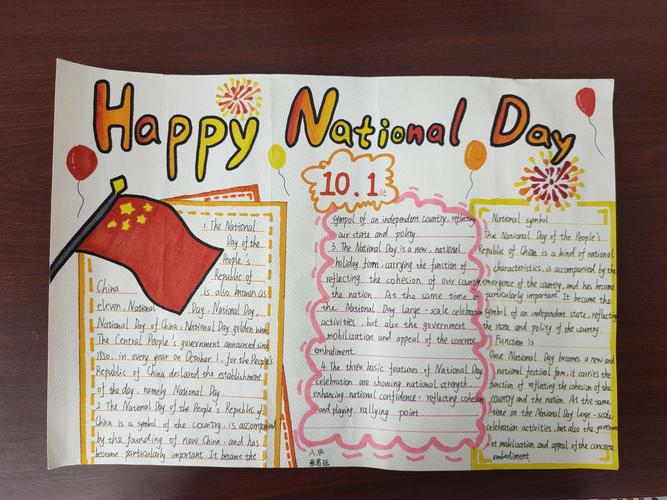 Happy National Day
10.1st
1. The National
Day of the
People's
Republic of
China is also known as
eleven, National Day, National Day,
National Day of China, National Day golden week
The Central People's government announced since
1950, in every year on October 1, for the People's
Republic of China declared the establishment
of the day, namely National Day
2. The National Day of the People's Republic of
China is a symbol of the country, is accompanied
by the founding of new China, and has
become particularly important. It became the
symbol of an independent country, reflecting
our state and polity.
3. The National Day is a new, national
holiday form, carrying the function of
reflecting the cohesion of our country
the nation. At the same time o
the National Day large-scale celebration
activities, but also the government
mobilization and appeal of the concrete
embodiment.
4. The three basic features of National Day
celebration are showing national strength,
enhancing national confidence, reflecting cohesion
and playing rallying point
National symbol
The National Day of the People's
Republic of China is a kind of national
characteristics, is accompanied by the
emergence of the country, and has become
particularly important. It became the
symbol of an independent state, reflecting
the state and polity of the country.
Function is
Once National Day becomes a new and
national festival form, it carries the
function of reflecting the cohesion of the
country and the nation. At the same
time on the National Day large-scale
celebration activities, but also the government
mobilization and appeal of the concrete
embodiment